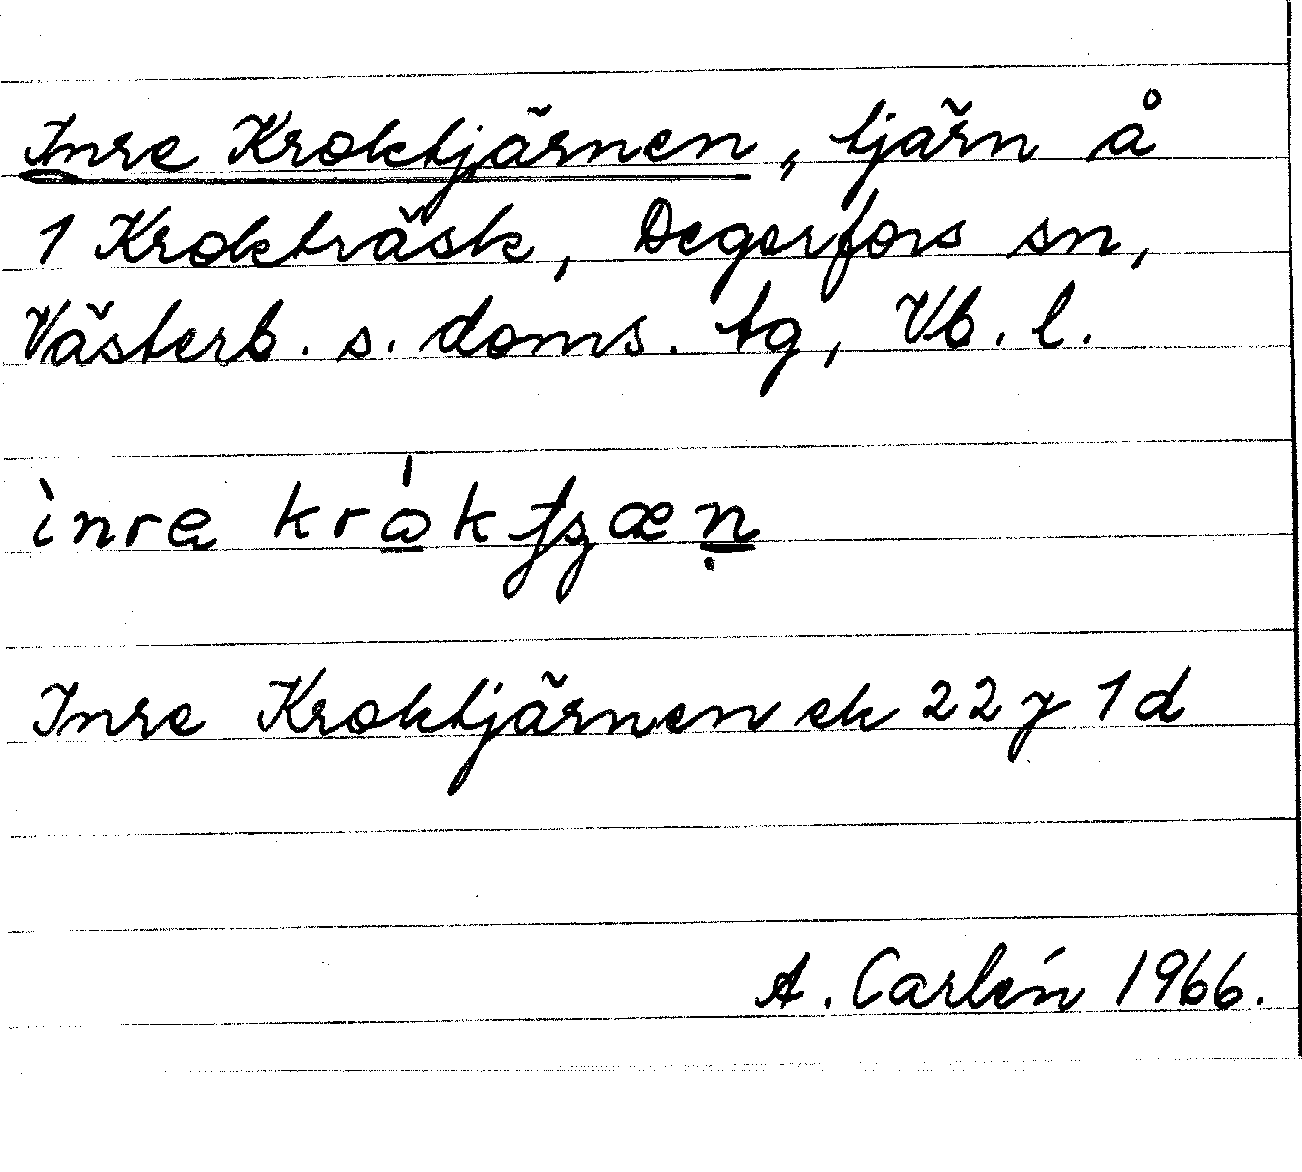 Inre Kroktjärnen, tjärn å
1 Krokträsk, Degerfors sn,
Västerb. s. doms. tg, Vb. l.
Inre Kroktjärnen ek 22 7 1 d
A. Carlén 1966.